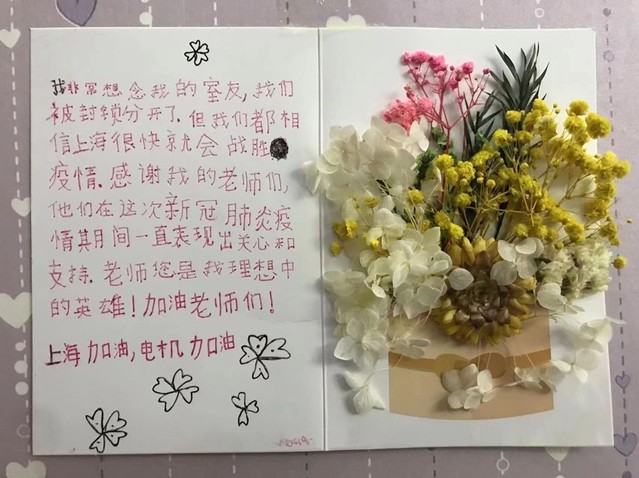 我非常想念我的室友，我们
被封锁分开了，但我们都相
信上海很快就会战胜
疫情。感谢我的老师们，
他们在这次新冠肺炎疫
情其月间一直表现出关心和
支持。老师您是我理想中
的英雄！加油老师们！
上海加油，电机加油